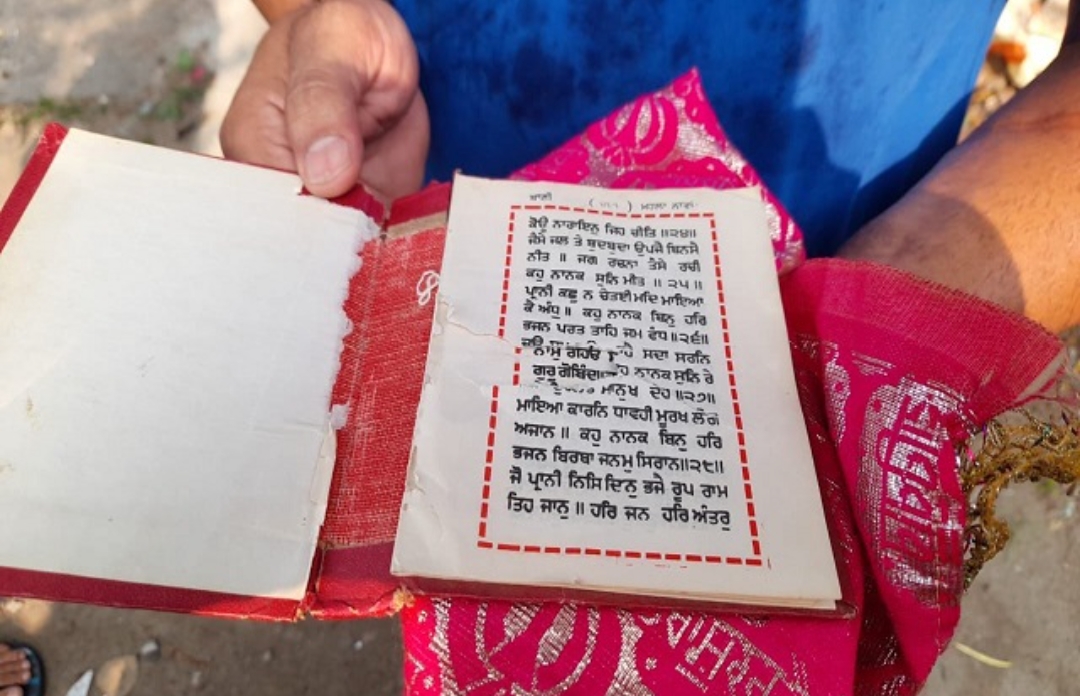 ਬਾਣੀ ( ) ਮਹਲਾ ਨਾਵਾਂ
ਕੋਊ ਨਾਰਾਇਨੁ ਜਿਹ ਚੀਤਿ ॥੨੪॥
ਜੈਸੇ ਜਲ ਤੇ ਬੁਦਬੁਦਾ ਉਪਜੈ ਬਿਨਸੈ
ਨੀਤ ॥ ਜਗ ਰਚਨਾ ਤੈਸੇ ਰਚੀ
ਕਹੁ ਨਾਨਕ ਸੁਨਿ ਮੀਤ ॥ ੨੫ ॥
ਪ੍ਰਾਨੀ ਕਛੂ ਨ ਚੇਤਈ ਮਦਿ ਮਾਇਆ
ਕੈ ਅੰਧੁ ॥ ਕਹੁ ਨਾਨਕ ਬਿਨੁ ਹਰਿ
ਭਜਨ ਪਰਤ ਤਾਹਿ ਜਮ ਫੰਧ ॥੨੬॥
ਸਦਾ ਸਰਨਿ
ਨਾਮੁ ਗਹਓ
ਨਾਨਕ ਸੁਨਿ ਰੇ
ਗੁਰੂ ਗੋਬਿੰਦਾ
ਮਾਨੁਖ ਦੇਹ ॥੨੭॥
ਮਾਇਆ ਕਾਰਨਿ ਧਾਵਹੀ ਮੂਰਖ ਲੋਗ
ਅਜਾਨ ॥ ਕਹੁ ਨਾਨਕ ਬਿਨੁ ਹਰਿ
ਭਜਨ ਬਿਰਥਾ ਜਨਮੁ ਸਿਰਾਨ॥੨੮॥
ਜੋ ਪ੍ਰਾਨੀ ਨਿਸਿ ਦਿਨੁ ਭਜੇ ਰੂਪ ਰਾਮ
ਤਿਹ ਜਾਨੁ ॥ ਹਰਿ ਜਨ ਹਰਿ ਅੰਤਰੁ